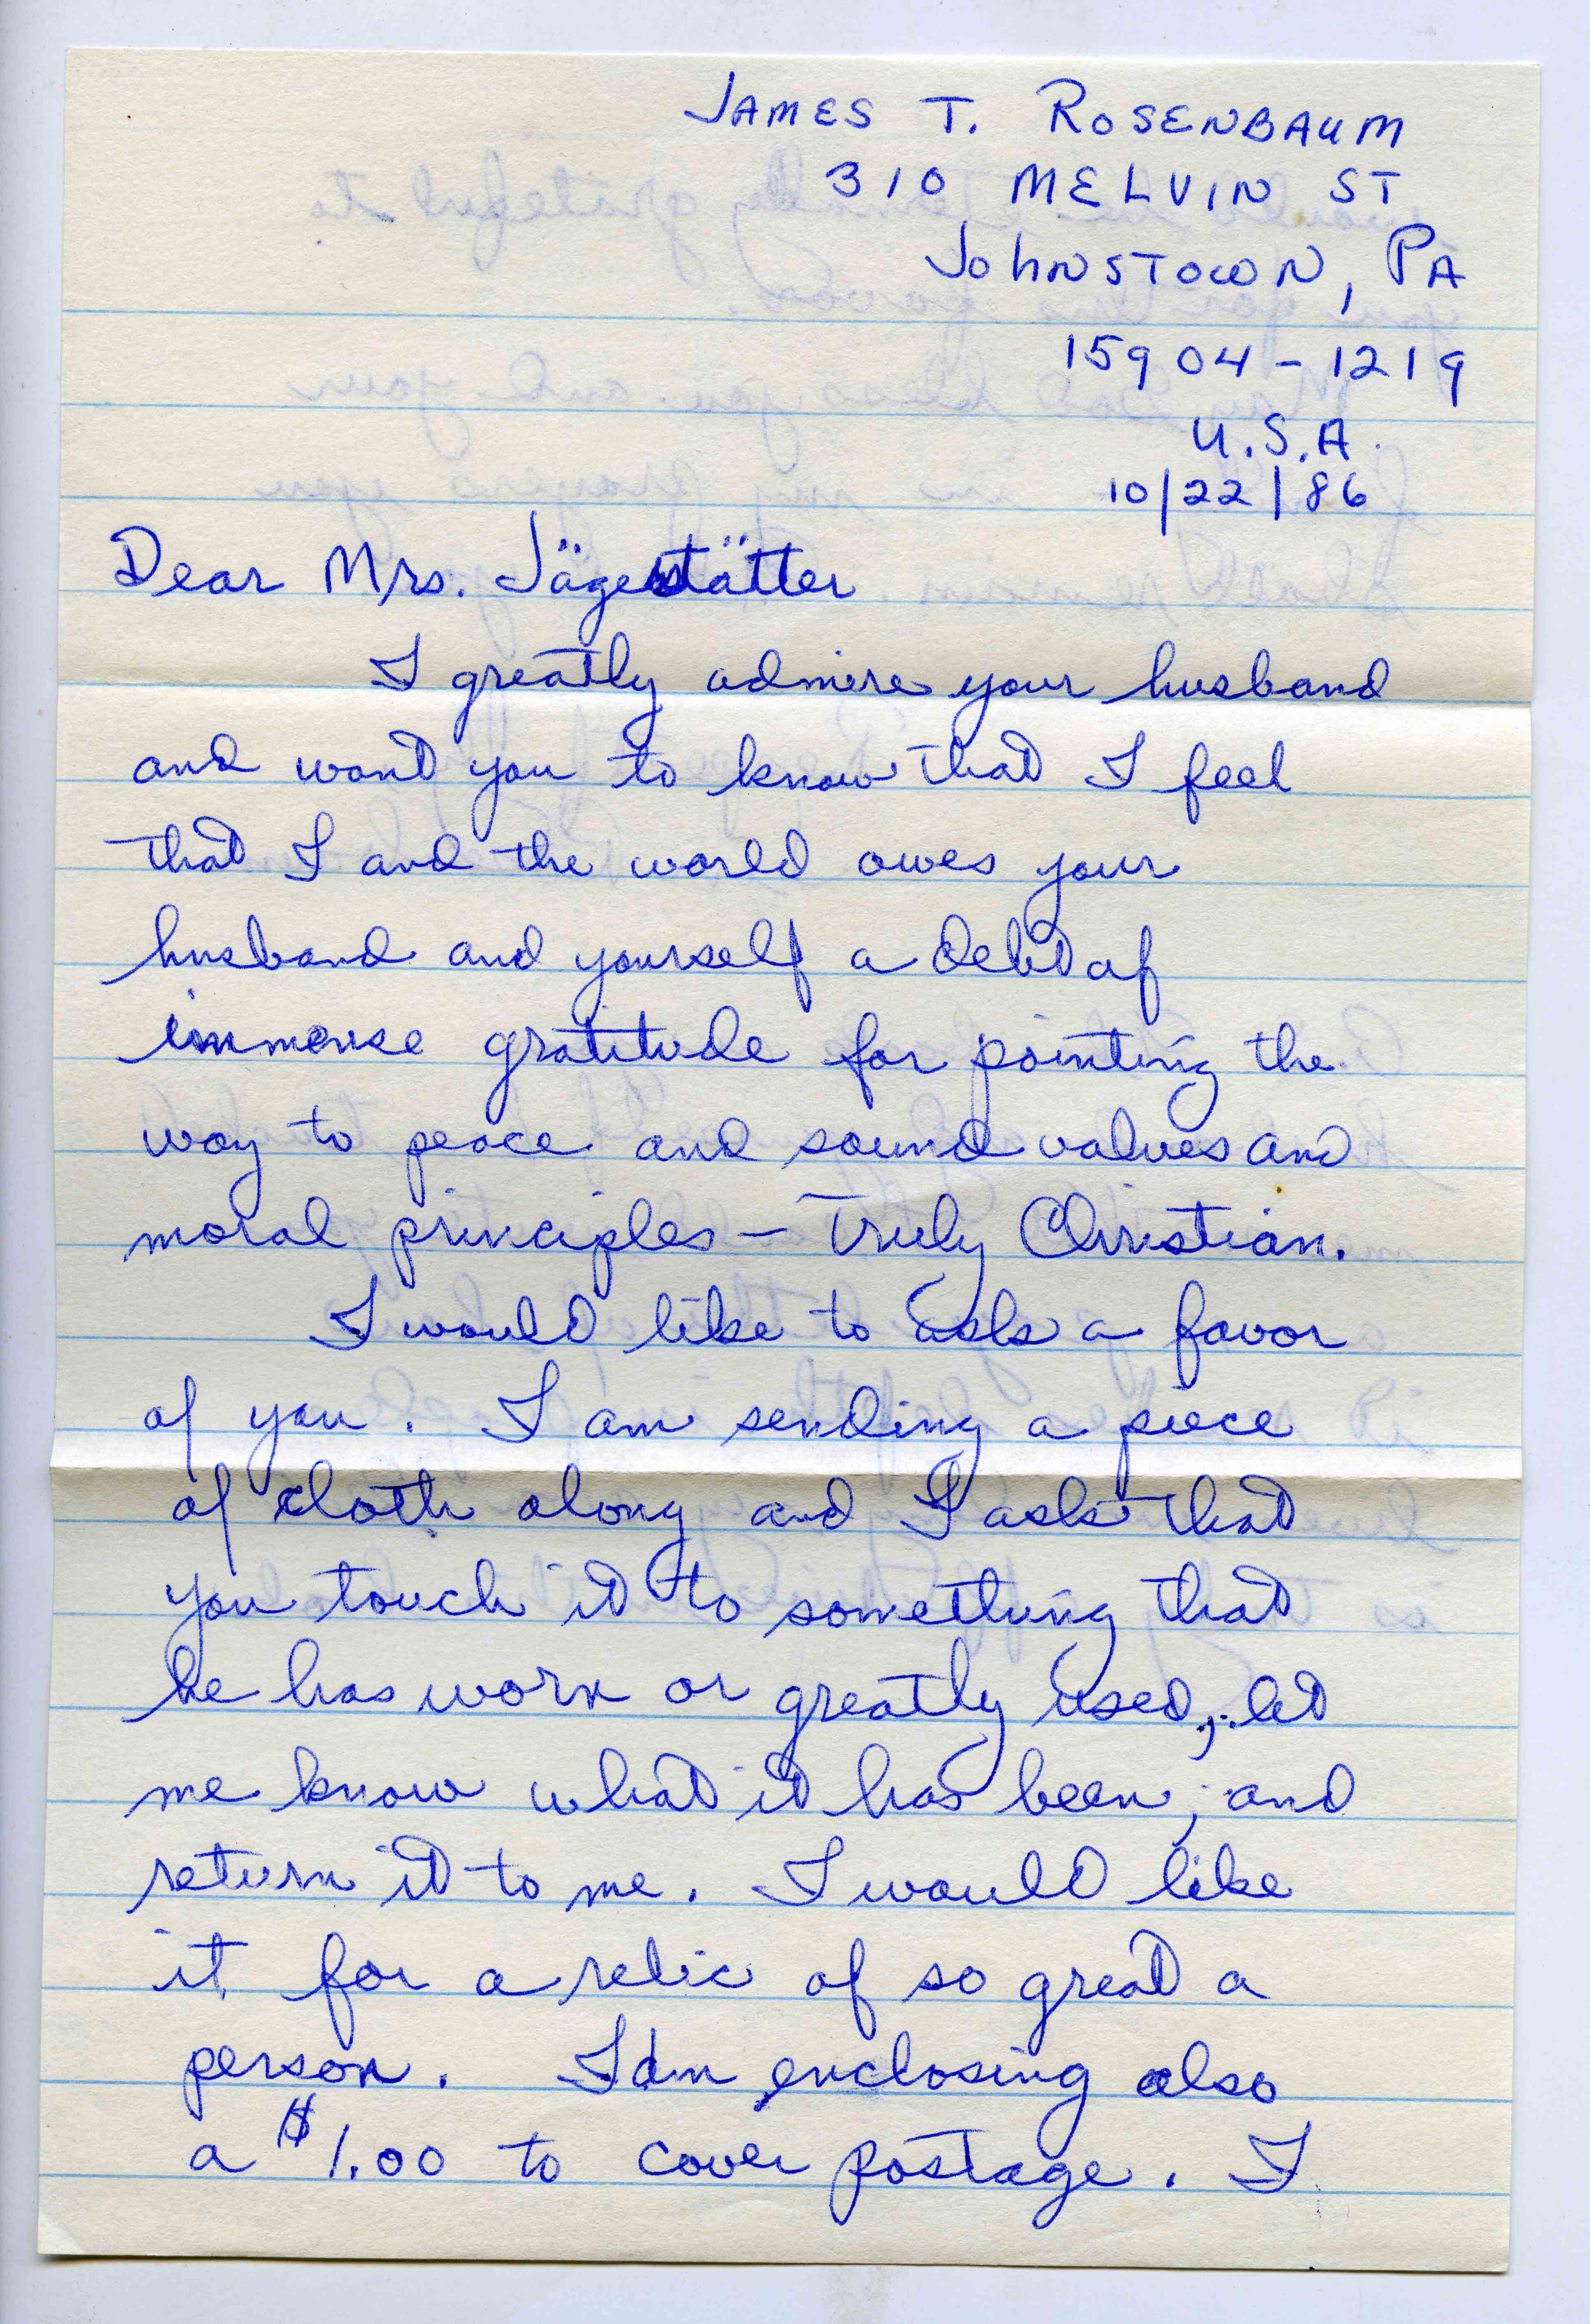 JAMES T. ROSENBAUM
310 MELVIN ST
JOHNSTOWN, PA
15904-1219
U.S.A.
10/22/86
Dear Mrs. Jägerstätter
I greatly admire your husband
and want you to know that I feel
that I and the world owes your
husband and yourself a debt of
immense gratitude for pointing the
way to peace and sound values and
moral principles — Truly Christian.
I would like to ask a favor
of you. I am sending a piece
of cloth along and I ask that
you touch it to something that
he has worn or greatly used, let
me know what it has been, and
return it to me. I would like
it for a relic of so great a
person. I am enclosing also
a $1.00 to cover postage. I